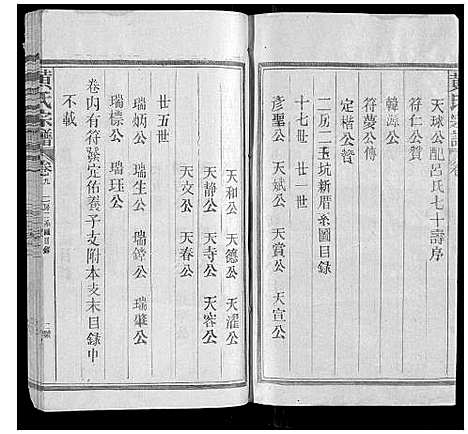 黃氏宗譜
天球公配呂氏七十壽序
符仁公贊
韓源公
符夢公傳
定楷公贊
二房二玉坑新厝系圖目錄
十七世 廿一世
彥聖公 天斌公 天賞公 天宣公
天和公 天德公 天濯公
天靜公 天寺公 天容公
天文公 天春公
廿五世
瑞舫公 瑞生公 瑞鐘公 瑞肇公
瑞標公 瑞珏公
卷內有符發定佑養子支附本支末目錄中
不載
黃氏宗譜 卷九